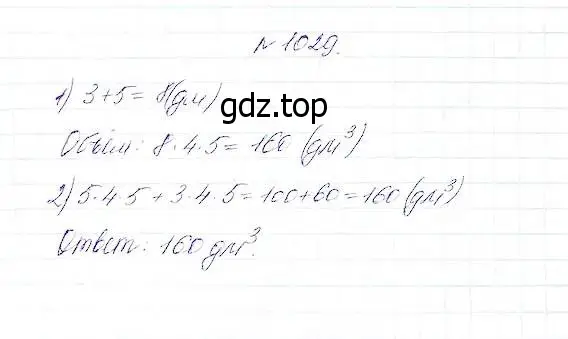 № 1029.
1) 3+5= 8(дм)
gdz.top
Объём: 8·4·5= 160 (дм³)
2) 5·4·5+3·4·5=100+60=160(дм³)
Ответ: 160 дм³.